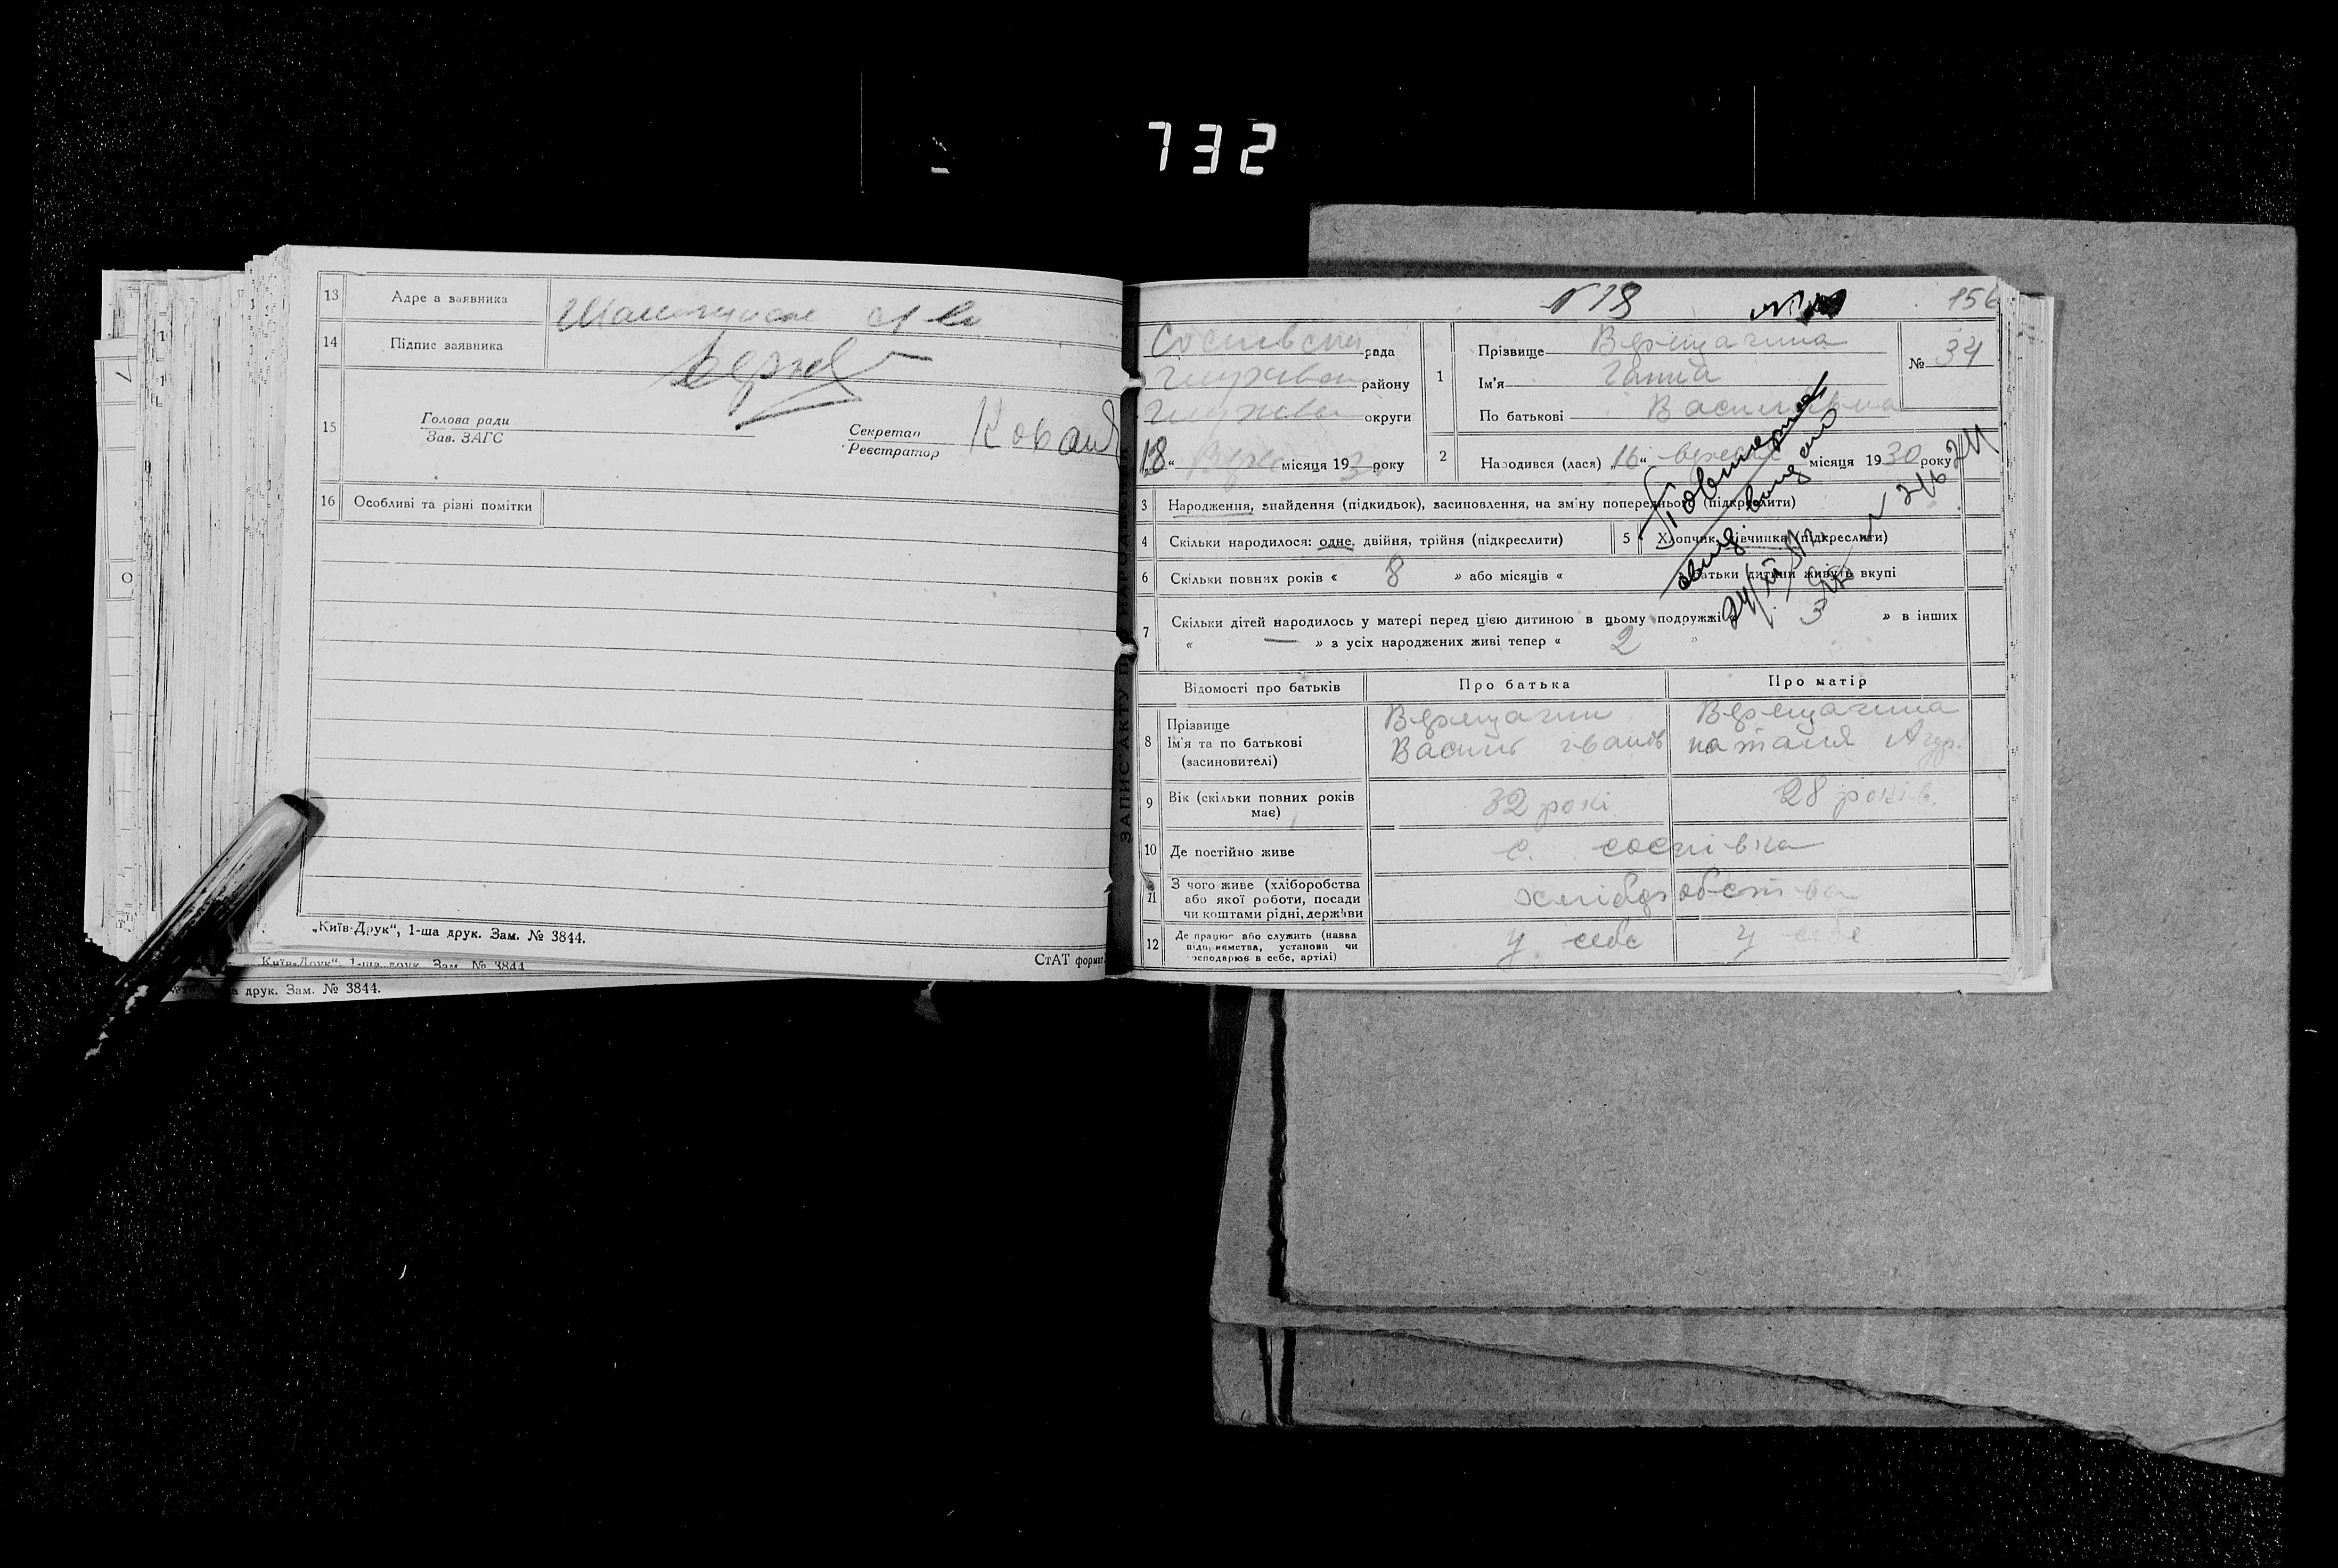 732
13 Адре а заявника
14 Підпис заявника
15 Голова ради
Зав. ЗАГС
Секретар
Реєстратор
Ковал
16 Особливі та різні помітки
„Київ-Друк“, 1-ша друк. Зам. № 3844.
СтАТ формат
Київ-Друк“, 1-ша друк. Зам. № 3844
а друк. Зам. № 3844.
ЗАПИС АКТУ П НАРОДЖЕННЯ
№ 18
156
рада
району
округи
18 “ місяця 193 року
1 Прізвище Верещагина
Ім'я Ганна
По батькові Васильевна
№ 34
2 Народився (лася) „16“ місяця 1930 року
Повторная
выд
3 Народження, знайдення (підкидьок), засиновлення, на зміну попереднього (підкреслити)
4 Скільки народилося: одне, двійня, трійня (підкреслити)
5 Хлопчик, дівчинка (підкреслити)
6 Скільки повних років « 8 » або місяців « батьки дитини живуть вкупі
7 Скільки дітей народилось у матері перед цією дитиною в цьому подружжі « 3 » в інших
« — » з усіх народжених живі тепер « 2 »
Відомості про батьків
Про батька
Про матір
8 Прізвище
Ім'я та по батькові
(засиновителі)
Верещагин
Василь Іванів
Верещагина
наталя Агур.
9 Вік (скільки повних років має)
32 рокі
28 років.
10 Де постійно живе
с. соснівка
11 З чого живе (хліборобства
або якої роботи, посади
чи коштами рідні, держави
хліборобства
12 Де працює або служить (назва
підприємства, установи чи
господарює в себе, артілі)
у себе
у себе